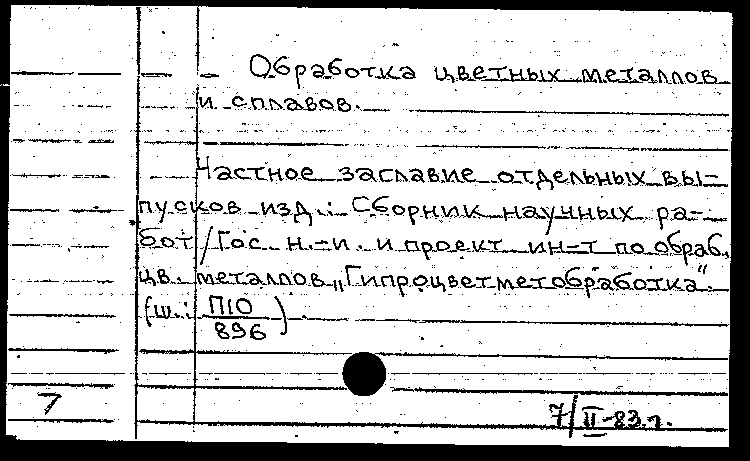 Обработка цветных металлов
и сплавов.
Частное заглавие отдельных вы-
пусков изд.: Сборник научных ра-
бот/Гос. н.-и. и проект. ин-т по обраб.
цв. металлов „Гипроцветметобработка".
(ш.: П10
896)
7
7/II-83 г.